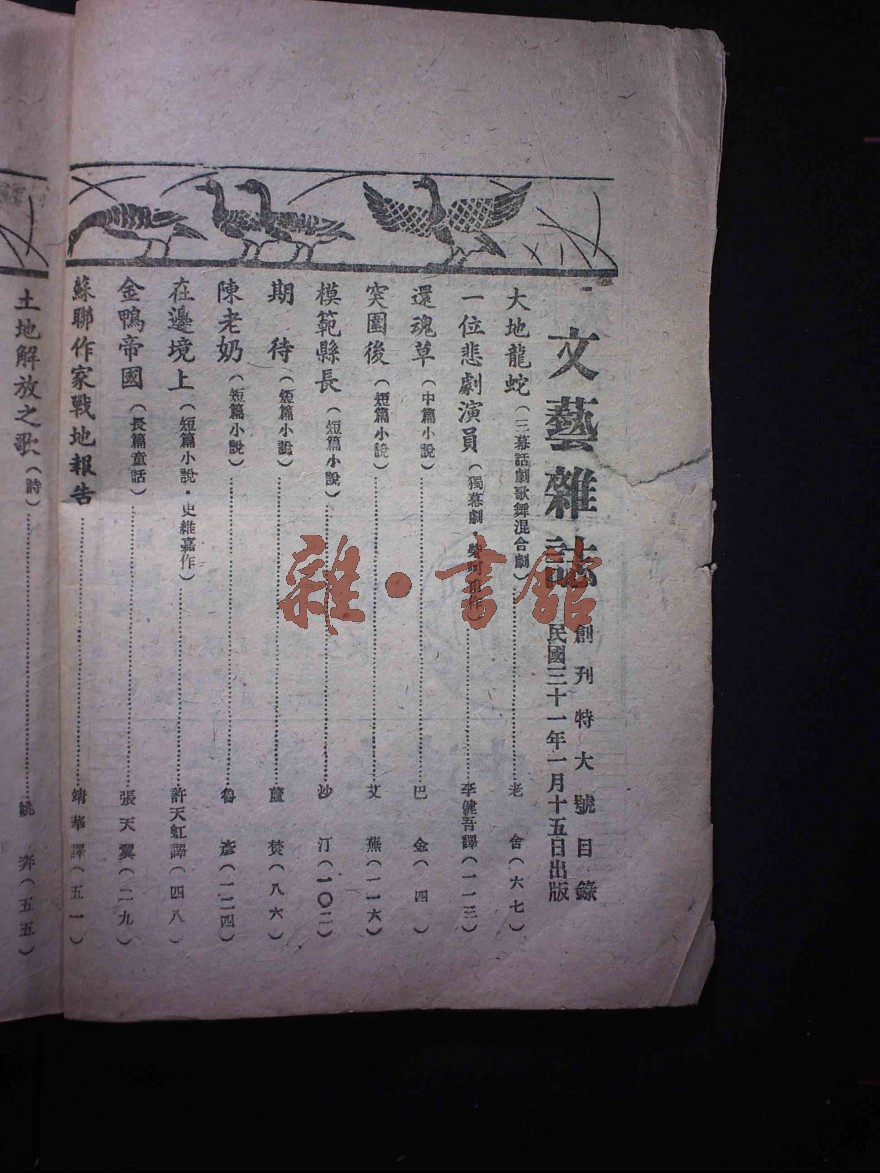 文藝雜誌
創刊特大號目錄
民國三十一年一月十五日出版
大地龍蛇（三幕話劇歌舞混合劇）……老舍（六七）
一位悲劇演員（獨幕劇・作）……李健吾譯（一一三）
還魂草（中篇小說）……巴金（四）
突圍後（短篇小說）……艾蕪（一一六）
模範縣長（短篇小說）……沙汀（一〇二）
期待（短篇小說）……蘆焚（八六）
陳老奶（短篇小說）……魯彥（一二四）
在邊境上（短篇小說・史維嘉作）……許天虹譯（四八）
金鴨帝國（長篇童話）……張天翼（二九）
蘇聯作家戰地報告……靖華譯（五一）
土地解放之歌（詩）……姚奔（五五）
雜・書館